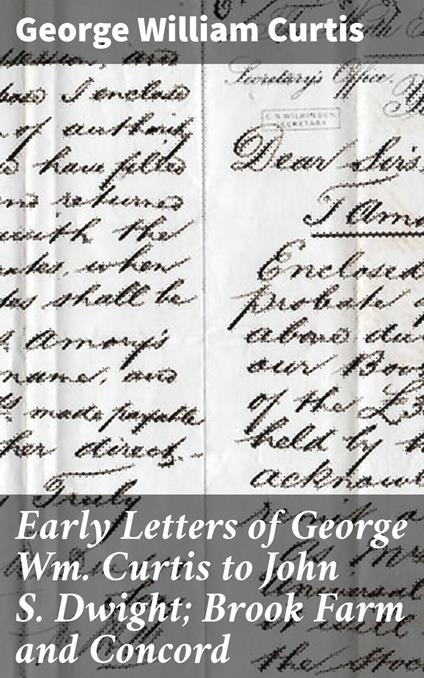 George William Curtis
and
has I enclos
of authority
have filled
and returns
with the
when
shall be
Amory's
name, and
made payable
her direct.
Truly
Secretary's Office
C. N. WILKINSON
SECRETARY
Dear Sirs
T. Amo
Enclosed
probate
above du
our Boo
of the £3
held by t
acknow
Early Letters of George
Wm. Curtis to John
S. Dwight; Brook Farm
and Concord
the stoc